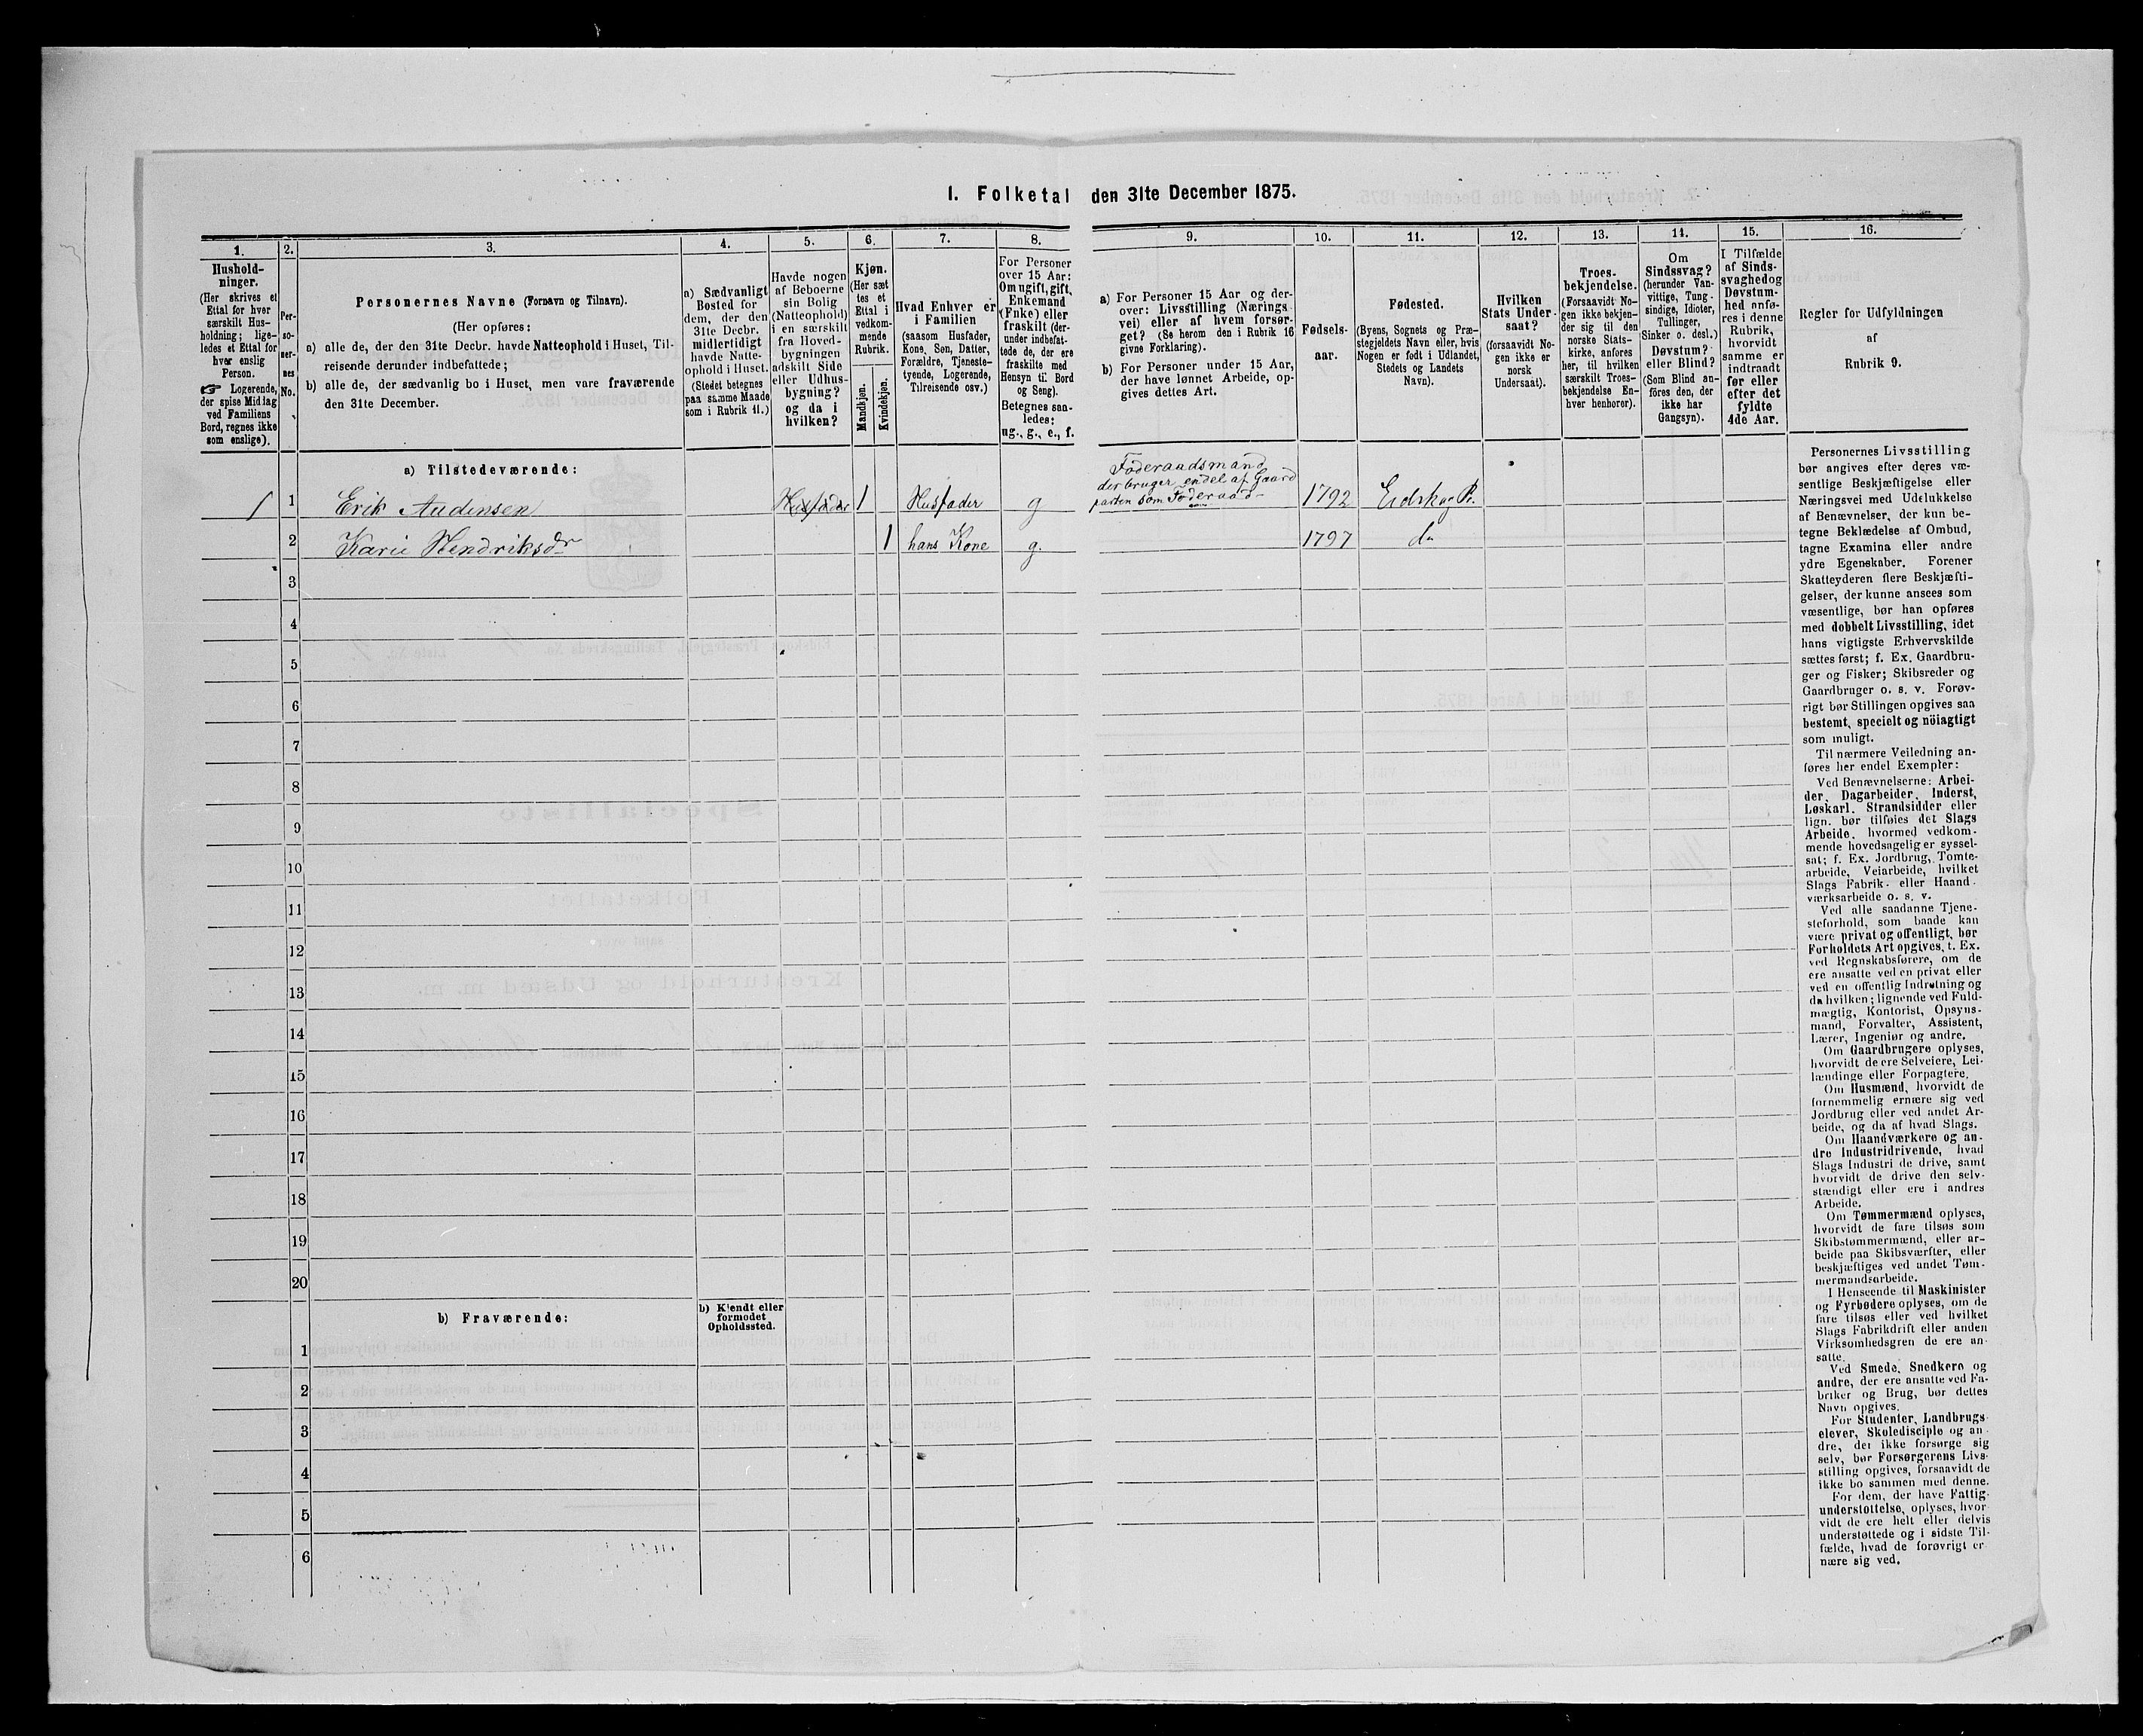 1. Folketal den 31te December 1875.
1.
Hushold-
ninger.
(Her skrives et
Ettal for hver
særskilt Hus-
holdning; lige-
ledes et Ettal for
hver enslig
Person.
☞ Logerende,
der spise Middag
ved Familiens
Bord, regnes ikke
som enslige).
2.
Per-
so-
ner-
nes
No.
3.
Personernes Navne (Fornavn og Tilnavn).
(Her opføres:
a) alle de, der den 31te Decbr. havde Natteophold i Huset, Til-
reisende derunder indbefattede;
b) alle de, der sædvanlig bo i Huset, men vare fraværende
den 31te December.
4.
a) Sædvanligt
Bosted for
dem, der den
31te Decbr.
midlertidigt
havde Natte-
ophold i Huset.
(Stedet betegnes
paa samme Maade
som i Rubrik 11.)
5.
Havde nogen
af Beboerne
sin Bolig
(Natteophold)
i en særskilt
fra Hoved-
bygningen
adskilt Side
eller Udhus-
bygning?
og da i
hvilken?
6.
Kjøn.
(Her sæt
tes et
Ettal i
vedkom-
mende
Rubrik.
Mandkjøn.
Kvindekjøn.
7.
Hvad Enhver er
i Familien
(saasom Husfader,
Kone, Søn, Datter,
Forældre, Tjeneste-
tyende, Logerende,
Tilreisende osv.)
8.
For Personer
over 15 Aar:
Om ugift, gift,
Enkemand
(Enke) eller
fraskilt (der-
under indbefat-
tede de, der ere
fraskilte med
Hensyn til Bord
og Seng).
Betegnes saa-
ledes:
ug., g., e., f.
9.
a) For Personer 15 Aar og der-
over: Livsstilling (Nærings-
vei) eller af hvem forsør-
get? (Se herom den i Rubrik 16
givne Forklaring).
b) For Personer under 15 Aar,
der have lønnet Arbeide, op-
gives dettes Art.
10.
Fødsels-
aar.
11.
Fødested.
(Byens, Sognets og Præ-
stegjeldets Navn eller, hvis
Nogen er født i Udlandet,
Stedets og Landets
Navn).
12.
Hvilken
Stats Under-
saat?
(forsaavidt No-
gen ikke er
norsk
Undersaat).
13.
Troes-
bekjendelse.
(Forsaavidt No-
gen ikke bekjen-
der sig til den
norske Stats-
kirke, anføres
her, til hvilken
særskilt Troes-
bekjendelse En-
hver henhører).
14.
Om
Sindssvag?
(herunder Van-
vittige, Tung-
sindige, Idioter,
Tullinger,
Sinker o. desl.)
Døvstum?
eller Blind?
(Som Blind an-
föres den, der
ikke har
Gangsyn).
15.
I Tilfælde
af Sinds-
svaghed og
Døvstum-
hed anfø-
res i denne
Rubrik,
hvorvidt
samme er
indtraadt
før eller
efter det
fyldte
4de Aar.
16.
Regler for Udfyldningen
af
Rubrik 9.
a) Tilstedeværende:
1 1 Erik Audensen Husfader 1 Husfader g Føderaadsmand
der bruger endel af Gaard
parten som Føderaad 1792 Eidskog Pr.
2 Karie Hendriksdr 1 hans Kone g. 1797 do
3
4
5
6
7
8
9
10
11
12
13
14
15
16
17
18
19
20
b) Fraværende:
b) Kjendt eller
formodet
Opholdssted.
1
2
3
4
5
6
Personernes Livsstilling
bør angives efter deres væ-
sentlige Beskjæftigelse eller
Næringsvei med Udelukkelse
af Benævnelser, der kun be-
tegne Beklædelse af Ombud,
tagne Examina eller andre
ydre Egenskaber. Forener
Skatteyderen flere Beskjæfti-
gelser, der kunne ansees som
væsentlige, bør han opføres
med dobbelt Livsstilling, idet
hans vigtigste Erhvervskilde
sættes først; f. Ex. Gaardbru-
ger og Fisker; Skibsreder og
Gaardbruger o. s. v. Forøv-
rigt bør Stillingen opgives saa
bestemt, specielt og nöiagtigt
som muligt.
Til nærmere Veiledning an-
føres her endel Exempler:
Ved Benævnelserne: Arbei-
der, Dagarbeider, Inderst,
Løskarl, Strandsidder eller
lign. bør tilføies det Slags
Arbeide, hvormed vedkom-
mende hovedsagelig er syssel-
sat; f. Ex. Jordbrug, Tomte-
arbeide, Veiarbeide, hvilket
Slags Fabrik- eller Haand-
værksarbeide o. s. v.
Ved alle saadanne Tjene-
steforhold, som baade kan
være privat og offentligt, bør
Forholdets Art opgives, t. Ex.
ved Regnskabsførere, om de
ere ansatte ved en privat eller
ved en offentlig Indretning og
da hvilken; lignende ved Fuld-
mægtig, Kontorist, Opsyns-
mand, Forvalter, Assistent,
Lærer, Ingeniør og andre.
Om Gaardbrugere oplyses,
hvorvidt de ere Selveiere, Lei-
lændinge eller Forpagtere.
Om Husmænd, hvorvidt de
fornemmelig ernære sig ved
Jordbrug eller ved andet Ar-
beide, og da af hvad Slags.
Om Haandværkere og an-
dre Industridrivende, hvad
Slags Industri de drive, samt
hvorvidt de drive den selv-
stændigt eller ere i andres
Arbeide.
Om Tømmermænd oplyses,
hvorvidt de fare tilsøs som
Skibstømmermænd, eller ar-
beide paa Skibsværfter, eller
beskjæftiges ved andet Tøm-
mermandsarbeide.
I Henseende til Maskinister
og Fyrbødere oplyses, om de
fare tilsøs eller ved hvilket
Slags Fabrikdrift eller anden
Virksomhedsgren de ere an-
satte.
Ved Smede, Snedkere og
andre, der ere ansatte ved Fa-
briker og Brug, bør dettes
Navn opgives.
For Studenter, Landbrugs-
elever, Skoledisciple og an-
dre, der ikke forsørge sig
selv, bør Forsørgerens Livs-
stilling opgives, forsaavidt de
ikke bo sammen med denne.
For dem, der have Fattig-
understøttelse, oplyses, hvor-
vidt de ere helt eller delvis
understøttede og i sidste Til-
fælde, hvad de forøvrigt er-
nære sig ved.